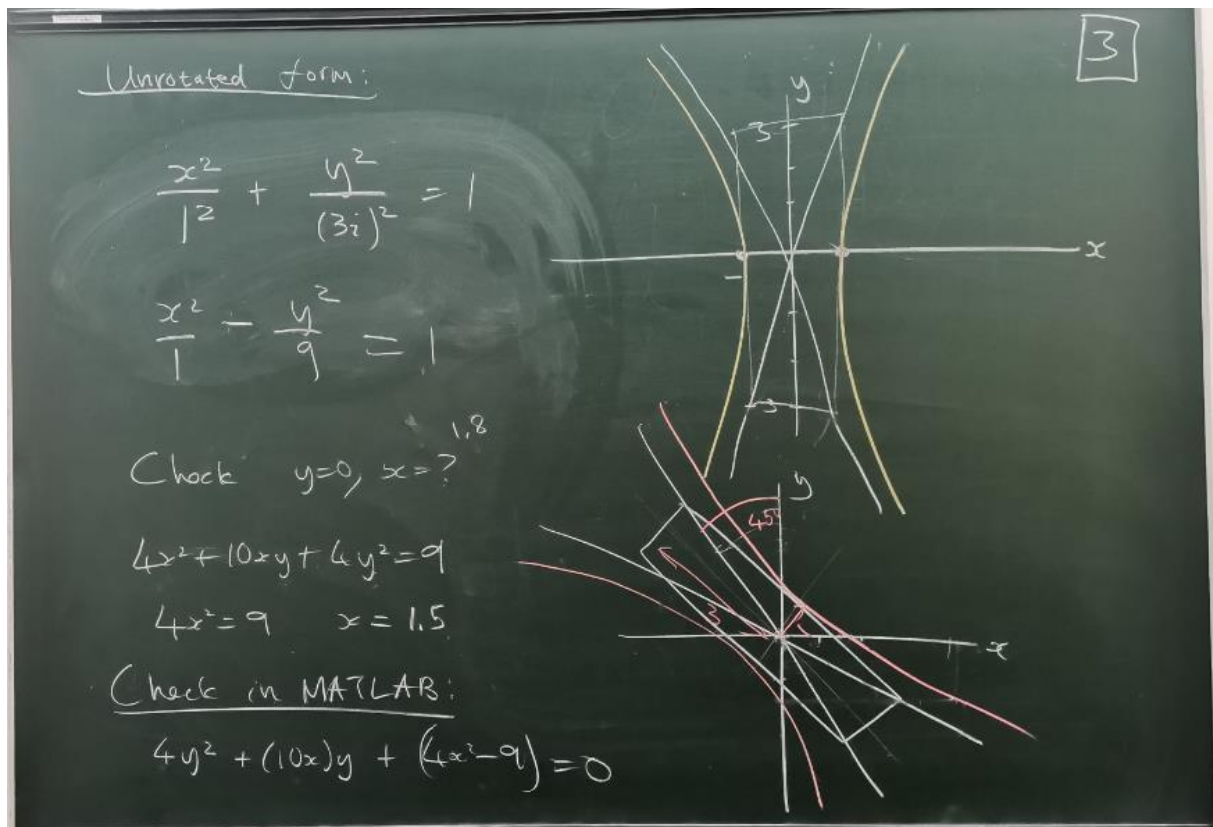 3
Unrotated form:
x²/1² + y²/(3i)² = 1
x²/1 - y²/9 = 1
1.8
Check y=0, x=?
4x²+10xy+4y²=9
4x²=9 x=1.5
Check in MATLAB:
4y² + (10x)y + (4x²-9) = 0
y
3
x
-1
-3
y
45°
3
1
x